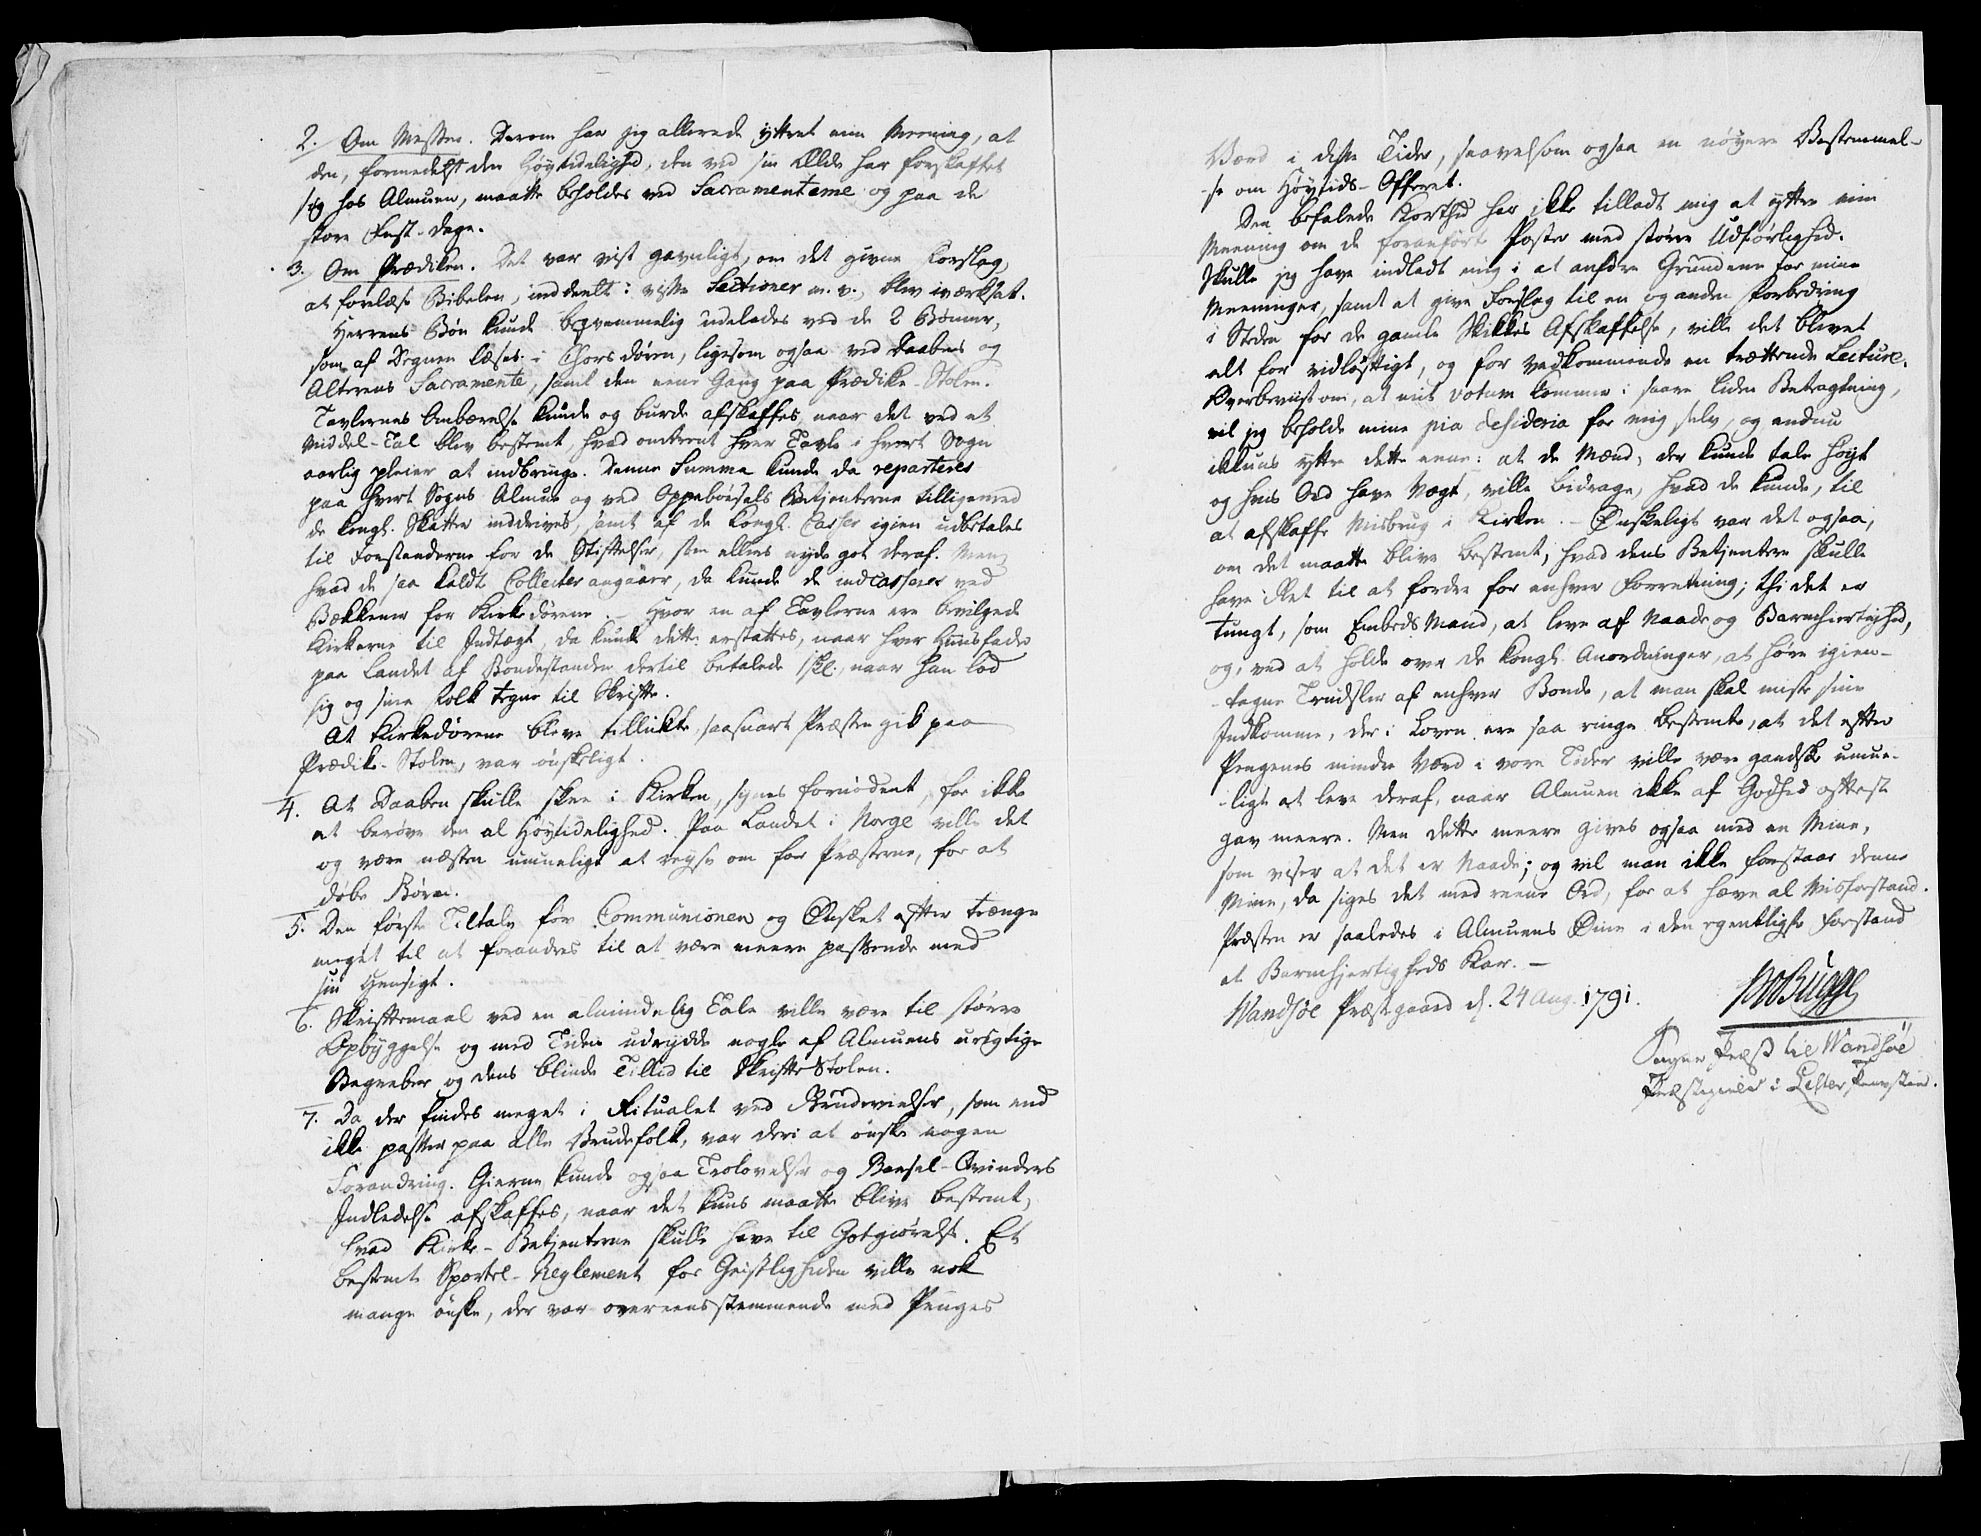 2. Om Messen. Derom har jeg allerede yttret min Meening, at
den, formedelst den Høytidelighed, den ved sin Ælde har forskaffet
sig hos Almuen, maatte beholdes ved Sacramenterne og paa de
store Fest-Dage.
3. Om Prædiken. Det var vist gavnligt, om det givne Forslag,
at forelæse Bibelen, inddeelt i visse Sectioner m. v., blev iværksat.
Herrens Bøn kunde beqvemmelig udelades ved de 2 Bønner,
som af Degnen læses i Chorsdøren, ligesom ogsaa ved Daabens og
Alterens Sacramente, samt den eene Gang paa Prædike-Stolen.
Tavlernes Ombærelse kunde og burde afskaffes, naar det ved et
Middel-Tal blev bestemt, hvad omtrent hver Tavle i hvert Sogn
aarlig pleier at indbringe. Denne Summa kunde da reparteres
paa hvert Sogns Almue og ved Oppebørsels Betjenterne tilligemed
de kongl. Skatter inddrives, samt af de kongl. Casser igien udbetales
til Forstanderne for de Stiftelser, som ellers nyde got deraf. Men
hvad de saa kaldte Collecter angaaer, da kunde de indcasseres ved
Bækkener for Kirkedørene. - Hvor en af Tavlerne ere bevilgede
Kirkerne til Indtægt, da kunde dette erstattes, naar hver Huusfader
paa Landet af Bondestanden dertil betalede 1 skl., naar han lod
sig og sine Folk tegne til Skrifte.
At Kirkedørene bleve tillukte, saasnart Præsten gik paa
Prædike-Stolen, var ønskeligt.
4. At Daaben skulle skee i Kirken, synes fornødent, for ikke
at berøve den al Høytidelighed. Paa Landet i Norge ville det
og være næsten umueligt at reyse om for Præsterne, for at
døbe Børn.
5. Den første Tiltale før Communionen og Ønsket efter trænge
meget til at forandres til at være meere passende med
sin Hensigt.
6. Skriftemaal ved en almindelig Tale ville være til større
Opbyggelse og med Tiden udrydde nogle af Almuens urigtige
Begreber og dens blinde Tillid til SkrifteStolen.
7. Da der findes meget i Ritualet ved Brudevielser, som end
ikke passer paa alle Brudefolk, var deri at ønske nogen
Forandring. Gierne kunde ogsaa Trolovelser og Barsel-Qvinders
Indledelse afskaffes, naar det kuns maatte blive bestemt,
hvad Kirke-Betjenterne skulle have til Gotgiørelse. Et
bestemt Sportel-Reglement for Geistligheden ville nok
mange ønske, der var overeensstemmende med Penges
Værd i disse Tider, saavelsom ogsaa en nøyere Bestemmel-
-se om Høytids-Offeret.
Den befalede Korthed har ikke tilladt mig at yttre min
Meening om de foranførte Poster med større Udførlighed.
Skulle jeg have indladt mig i at anføre Grundene for mine
Meeninger, samt at give Forslag til en og anden Forbedring
i Steden for de gamle Skikkes Afskaffelse, ville det blevet
alt for vidløftigt, og for vedkommende en trættende Lecture.
Overbeviist om, at mit votum kommer i saare liden Betragtning,
vil jeg beholde mine pia desideria for mig selv, og endnu
ikkuns yttre dette eene: at de Mænd, der kunde tale høyt
og hvis Ord have Vægt, ville bidrage, hvad de kunde, til
at afskaffe Misbrug i Kirken. - Ønskeligt var det ogsaa,
om det maatte blive bestemt, hvad dens Betjentere skulle
have Ret til at fordre for enhver Forretning; thi det er
tungt, som EmbedsMand, at leve af Naade og Barmhiertighed,
og, ved at holde over de kongl. Anordninger, at høre igien-
-tagne Trudsler af enhver Bonde, at man skal miste sine
Indkomme, der i Loven ere saa ringe bestemte, at det efter
Pengenes mindre Værd i vore Tider ville være gandske umue-
-ligt at leve deraf, naar Almuen ikke af Godhed oftest
gav meere. Men dette meere gives ogsaa med en Mine,
som viser at det er Naade; og vil man ikke forstaae denne
Mine, da siges det med reene Ord, for at hæve al Misforstand.
Præsten er saaledes i Almuens Øine i den egentligste Forstand
et Barmhjertigheds Kar. -
Wandsøe Præstegaard d. 24 Aug. 1791.
Bugge
Sogne Præst til Wandsøe
Præstegield i Lister Provstie.